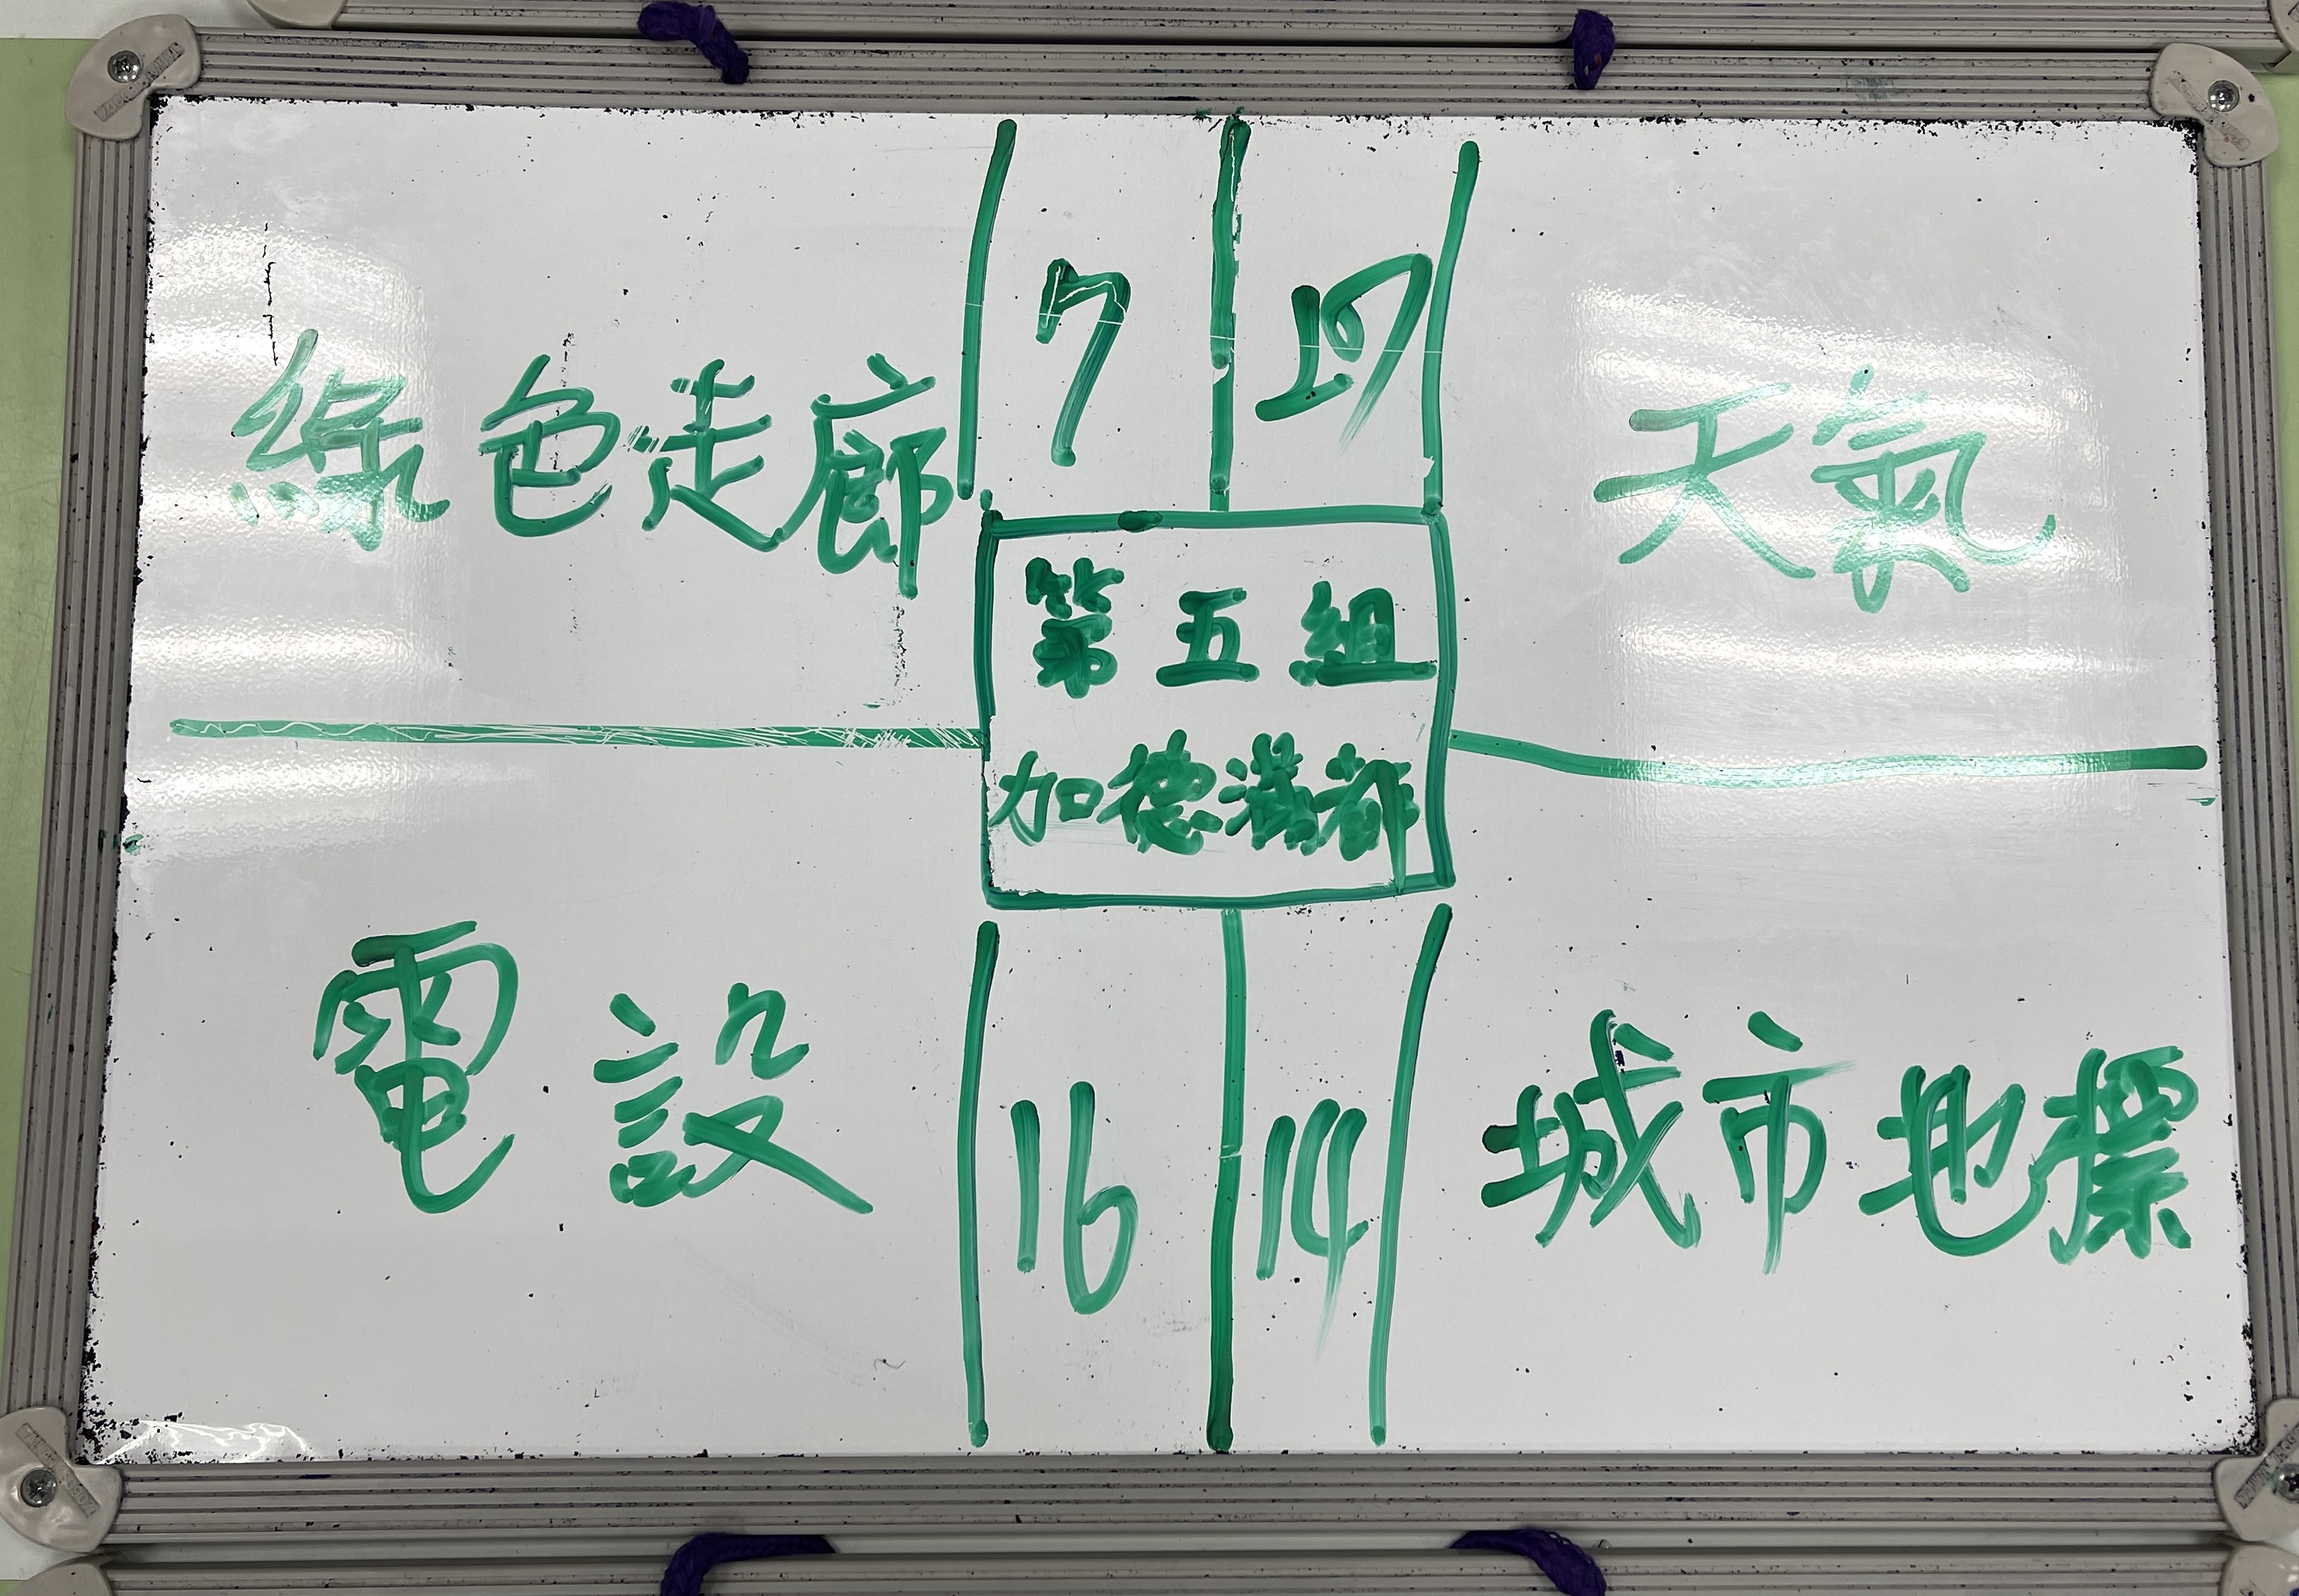 綠色走廊
7
19
天氣
第五組
加德滿都
電設
16
14
城市地標